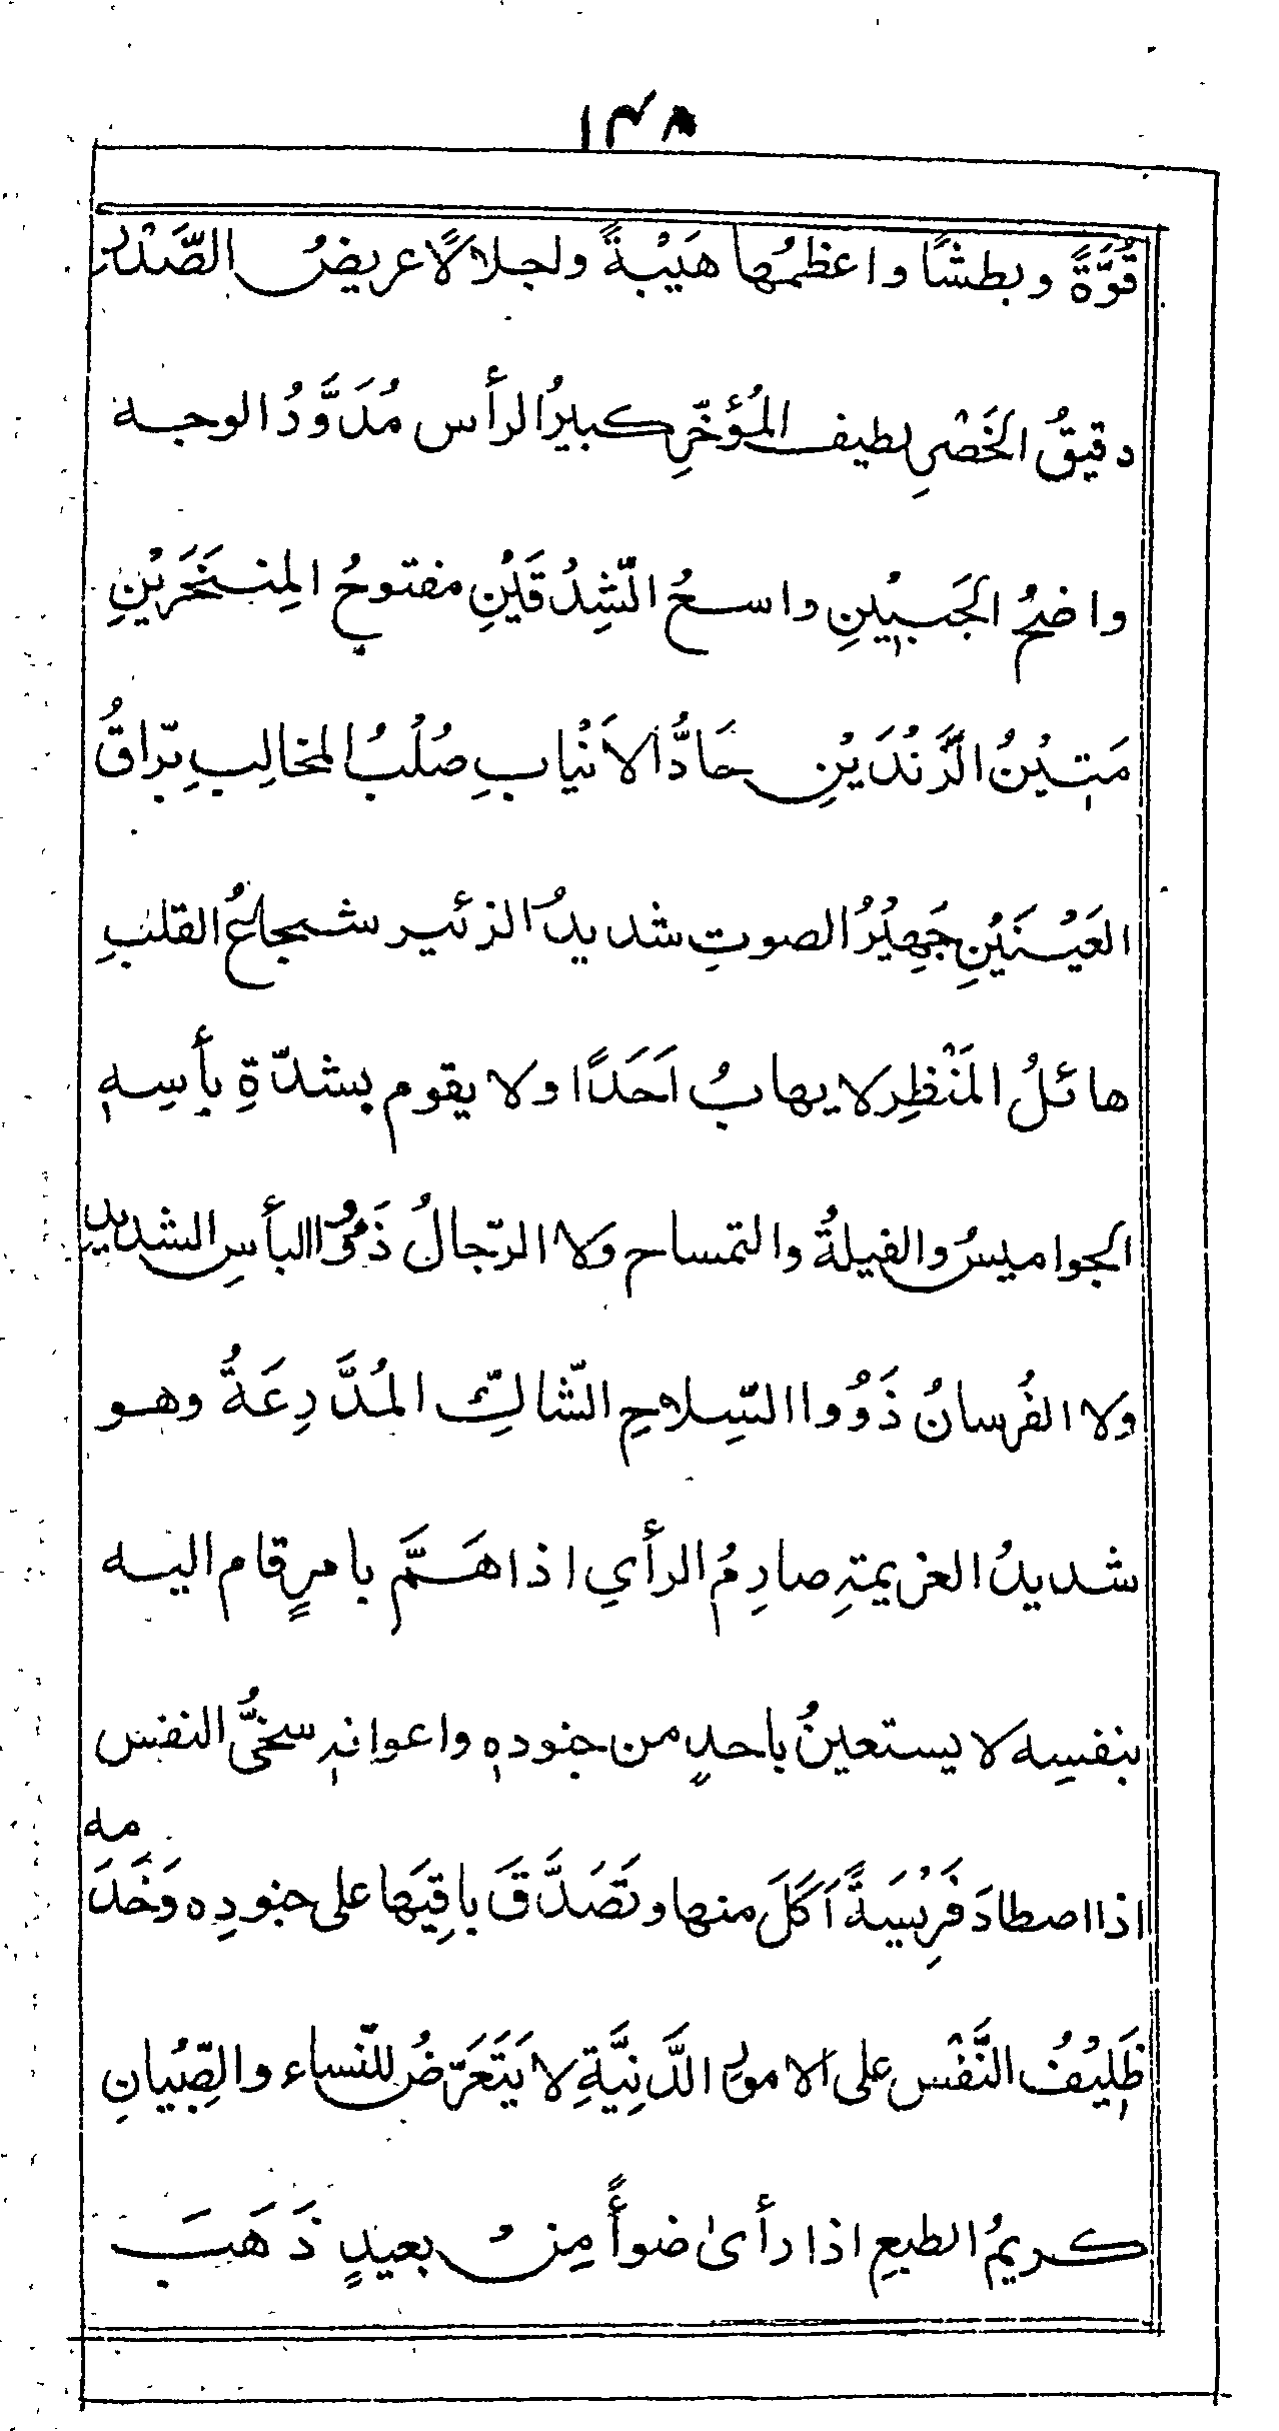 ١٣٨
قُوَّةً وبطشًا واعظمُها هَيْبةً ولجلالًا عريضُ الصَّدْر
دقيقُ الخَصْرِ لطيف المُؤخّرِ كبيرُ الرأس مُدَوَّدُ الوجه
واضحُ الجَبِيْنِ واسعُ الشِّدْقَيْنِ مفتوحُ المِنْخَرَيْنِ
مَتِيْنُ الزَّنْدَيْنِ حَادُّ الاَنْيابِ صُلْبُ المخالِبِ برّاقُ
العَيْنَيْنِ جَهِيْرُ الصوتِ شديدُ الزئير شجاعُ القلبِ
هائلُ المَنْظِرِ لا يهابُ اَحَدًا ولا يقوم بشدّةِ بأسِهٖ
الجواميسُ والفيلةُ والتمساح ولا الرّجالُ ذَوُوا البأسِ الشديد
ولا الفُرسانُ ذَوُوا السِّلاحِ الشّاكِّ المُدَّرِعَةُ وهو
شديدُ العزيمةِ صارِمُ الرأيِ اذا هَمَّ بامرٍ قام اليه
بنفسِه لا يستعينُ باحدٍ من جنودهٖ واعوانهٖ سخىُّ النفس
اذا اصطادَ فَرِيْسَةً اَكَلَ منها وتَصَدَّقَ باقِيَها على جنودِه وَخَدَمه
ظَلِيْفُ النَّفْس على الامورِ الدَّنِيَّةِ لا يَتَعَرَّضُ للنّساء والصِّبْيانِ
كريمُ الطبعِ اذا رأىٰ ضوأً مِنْ بعيدٍ ذَهَبَ